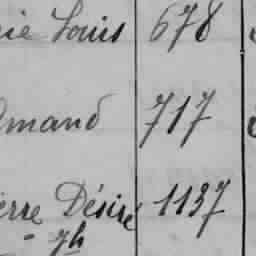 rie Louis 678
lmand 717
ierre Désiré 1137